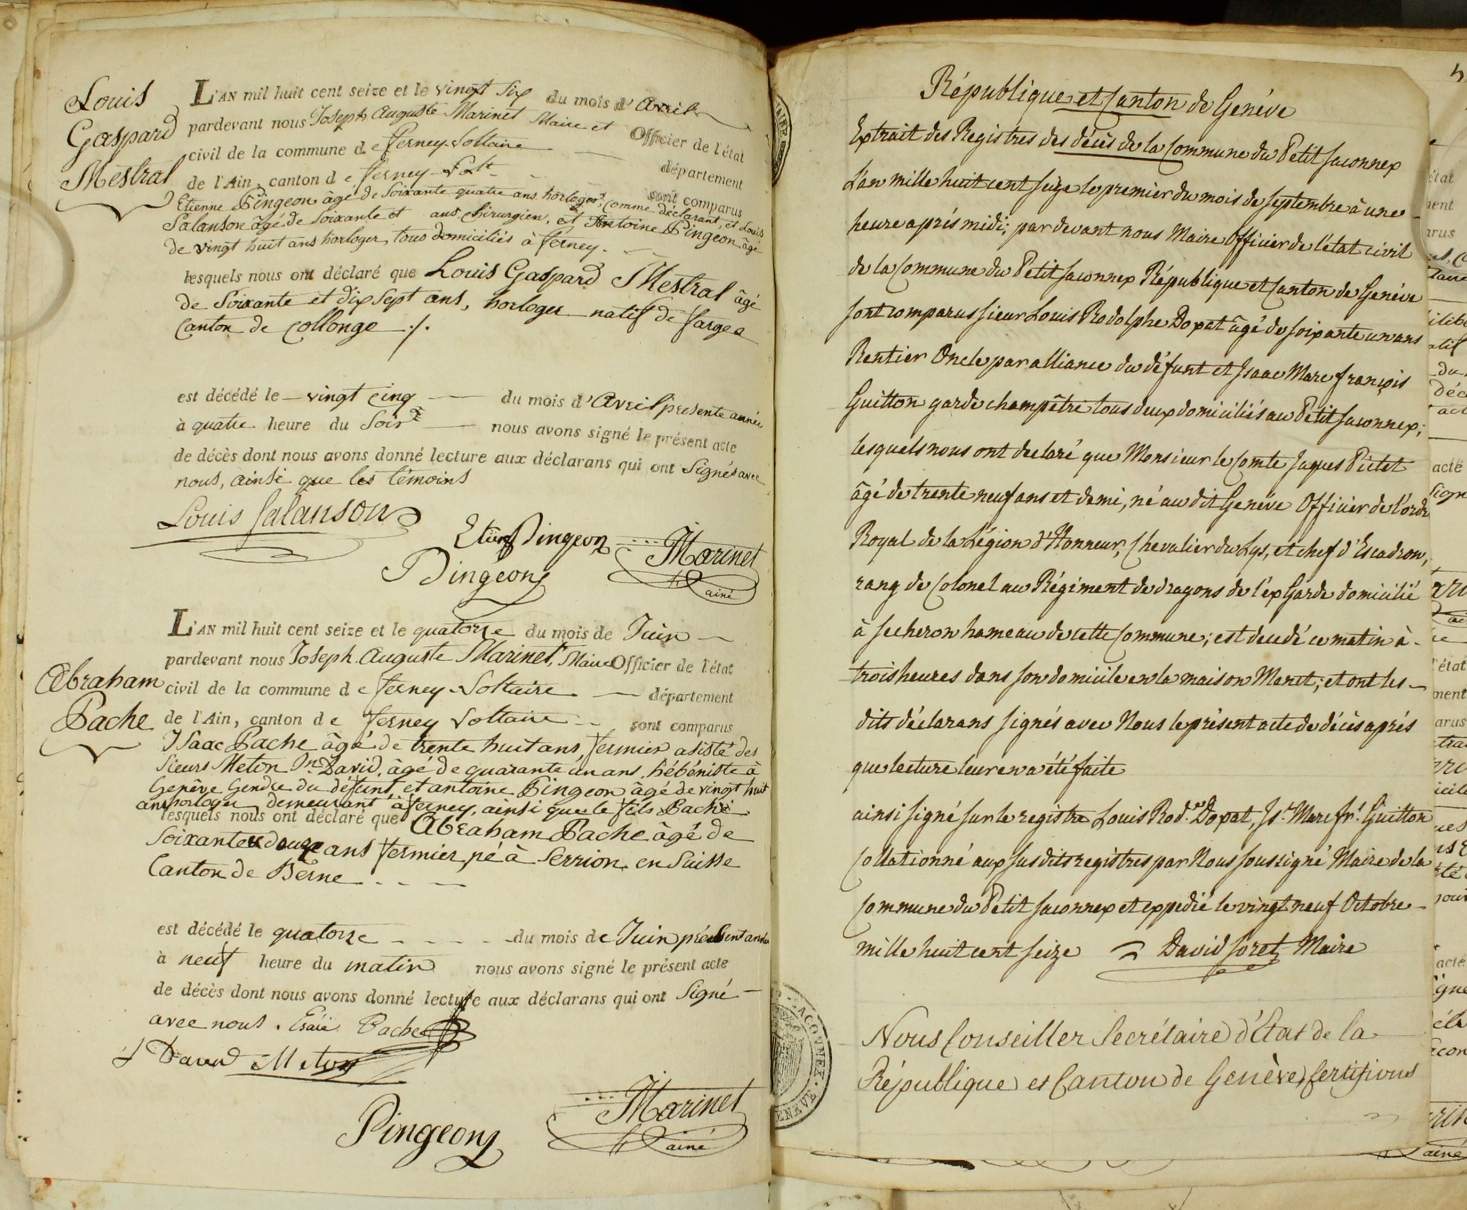 Louis
Gaspard
Mestral
L'AN mil huit cent seize et le vingt Six du mois d'Avril
pardevant nous Joseph Auguste Marinet Maire et Officier de l'état
civil de la commune de ferney-Voltaire département
de l'Ain, canton de ferney-Volt. sont comparus
Etienne Pingeon âgé de Soixante quatre ans horloger, comme déclarant, et Louis
Salanson âgé de soixante et ans chirurgien, et Antoine Pingeon âgé
de vingt huit ans horloger, tous domiciliés à ferney.
lesquels nous ont déclaré que Louis Gaspard Mestral âgé
de Soixante et dix sept ans, horloger natif de farges
Canton de Collonge ./.
est décédé le vingt cinq du mois d'Avril présente année
à quatre heure du Soir nous avons signé le présent acte
de décès dont nous avons donné lecture aux déclarans qui ont Signés avec
nous, ainsi que les témoins
Louis Salanson
Etienne Pingeon
Pingeon
Marinet
ainé
Abraham
Pache
L'AN mil huit cent seize et le quatorze du mois de Juin
pardevant nous Joseph Auguste Marinet, Maire Officier de l'état
civil de la commune de ferney-Voltaire département
de l'Ain, canton de ferney Voltaire sont comparus
Isaac Pache âgé de trente huit ans, fermier asisté des
Sieurs Meton Jn. David, âgé de quarante un ans, hébéniste à
Genêve Gendre du défunt, et antoine Pingeon âgé de vingt huit
ans horloger demeurant à ferney, ainsi que le fils Pache
lesquels nous ont déclaré que Abraham Pache âgé de
Soixante douze ans fermier né à Serrion en Suisse
Canton de Berne
est décédé le quatorze du mois de Juin présent année
à neuf heure du matin nous avons signé le présent acte
de décès dont nous avons donné lecture aux déclarans qui ont Signé
avec nous. Pache
David Meton
Pingeon
Marinet
ainé
République et Canton de Genève
Extrait des Registres des décès de la Commune du Petit Saconnex
L'an mille huit cent seize le premier du mois de septembre à une
heure après midi; par devant nous Maire Officier de l'état civil
de la Commune du Petit Saconnex République et Canton de Genève
sont comparus sieur Louis Rodolphe Dopat âgé de soixante un ans
Rentier Oncle par alliance du défunt et Isaac Marc françois
Guitton garde champêtre tous deux domiciliés au Petit Saconnex;
lesquels nous ont déclaré que Monsieur le Comte Jaques Pictet
âgé de trente neuf ans et demi, né au dit Genève Officier de l'ordre
Royal de la Légion d'Honneur, Chevalier du Lys, et chef d'Escadron,
rang de Colonel au Régiment de dragons de l'ex Garde domicilié
à Secheron hameau de cette Commune; est décédé ce matin à
trois heures dans son domicile en la maison ; et ont les
dits déclarans signés avec Nous le présent acte de décès après
que lecture leur en a été faite
ainsi signé sur le registre Louis Rod. Dopat, Is. Marc fr. Guitton
Collationné aux susdits registres par Nous soussigné Maire de la
Commune du Petit Saconnex et expédié le vingt neuf Octobre
mille huit cent seize David Soret Maire
Nous Conseiller Secrétaire d'Etat de la
République et Canton de Genève, Certifions